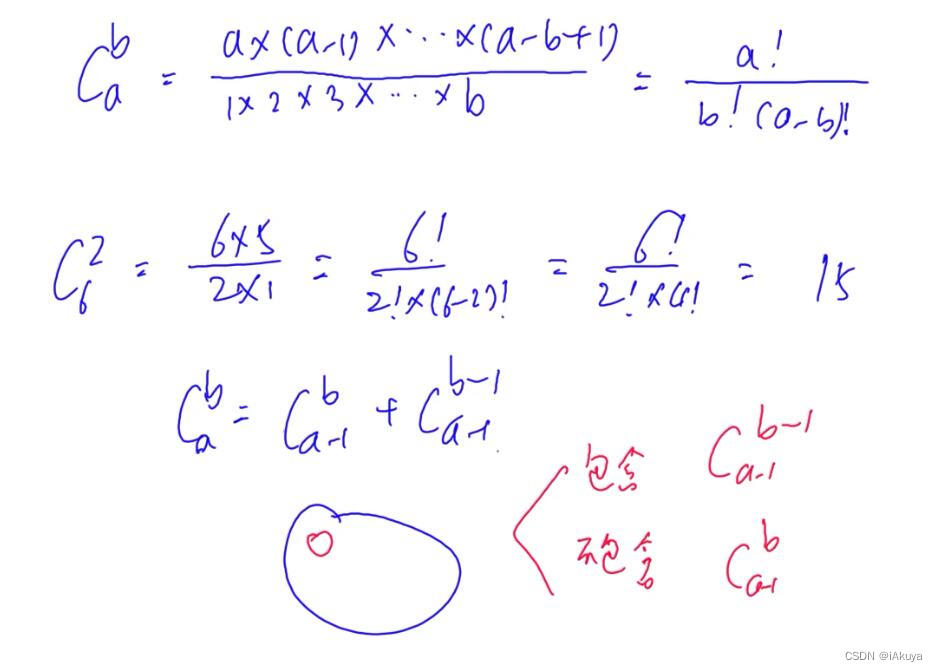 C_a^b = \frac{a×(a-1)×⋯×(a-b+1)}{1×2×3×⋯×b} = \frac{a!}{b!(a-b)!}
C_6^2 = \frac{6×5}{2×1} = \frac{6!}{2!×(6-2)!} = \frac{6!}{2!×4!} = 15
C_a^b = C_{a-1}^b + C_{a-1}^{b-1}
包含 C_{a-1}^{b-1}
不包含 C_{a-1}^b
CSDN @iAkuya